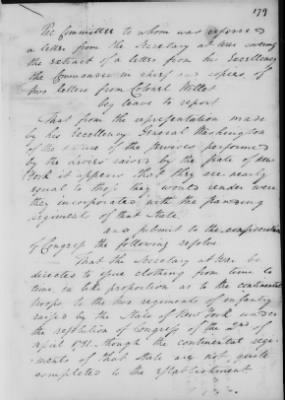 179
The Committee to whom was referred
a letter from the Secretary at War
the extract of a letter from his Excellency
the Commander in chief and copies of
two letters from Colonel Willet
beg leave to report
That from the representation made
by his Excellency General Washington
of the nature of the services performed
by the levies raised by the State of New
York it appears that they are nearly
equal to those they would render were
they incorporated with the
regiments of that State
and submit to the
of Congress the following resolve
That the Secretary at War be
directed to issue clothing from time to
time in like proportion as to the continental
troops to the two regiments of infantry
raised by the State of New York under
the resolution of Congress of the 2nd of
april 1781. though the continental regi-
ments of that State are not quite
completed to the establishment